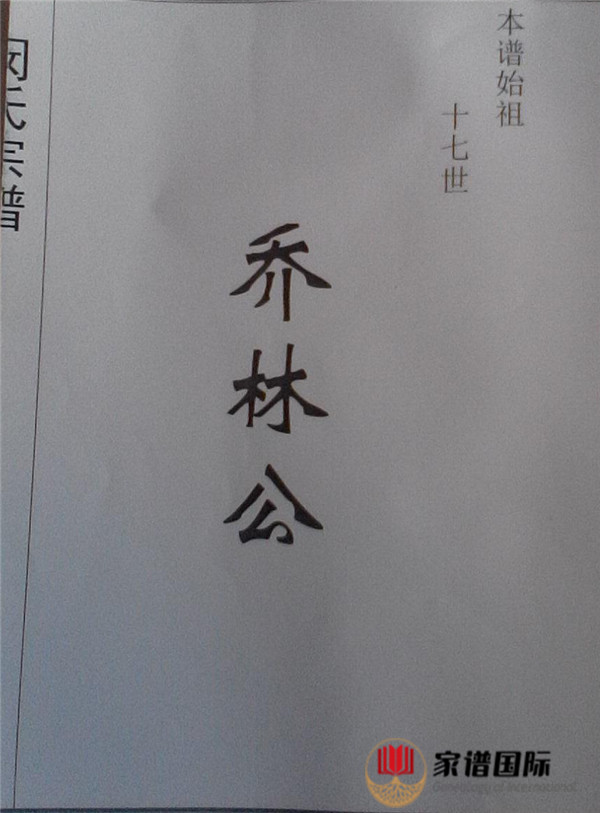 本谱始祖
十七世
乔林公
氏宗谱
家谱国际
Genealogy of International